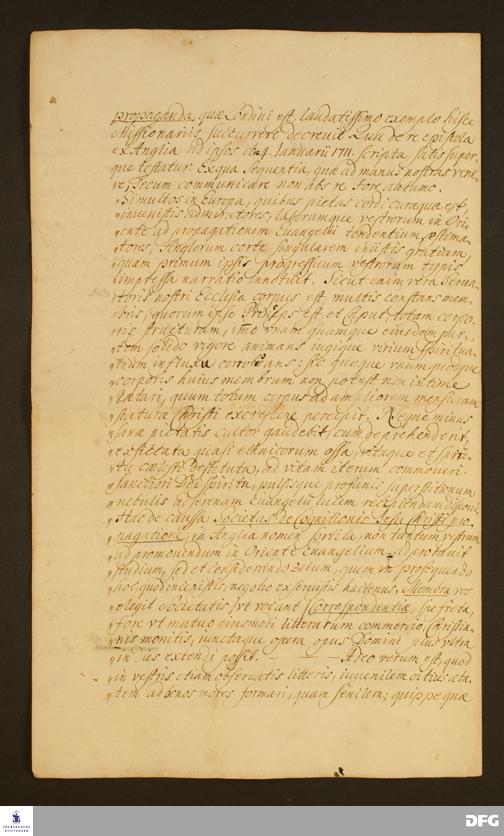 propaganda, quæ Londini est, laudatissimo exemplo hisce
Missionariis succurrere decrevit. Qua de re epistola
ex Anglia ad ipsos d. 4. Ianuarii 1711. scripta satis super-
que testatur: Ex qua sequentia, quæ ad manus nostras vene-
re, Tecum communicare non abs re fore autumo.
„Si multos in Europa, quibus pietas cordi curæque est
„invenistis admiratores, laborumque vestrorum in Ori-
„ente ad propagationem Evangelii tendentium, æstima-
„tores, Anglorum certe singularem inistis gratiam,
„quam primum ipsis progressuum vestrorum typis
„impressa narratio innotuit. Sicut enim vera Serva-
„toris nostri Ecclesia corpus est, multis constans mem-
„bris, quorum ipse Princeps est et Caput, totam corpo-
„ris structuram, imo unam quamque eiusdem par-
„tem solido vigore animans iugique virium spiritua-
„lium influxu corroborans: sic quoque unumquodque
„corporis huius membrum non potest non intime
„lætari, quum totum corpus ad ampliorem mensuram
„staturæ Christi excrescere percipit. Neque minus
„sanæ pietatis cultor gaudebit, cum deprehenderit,
„exsiccata quasi ethnicorum ossa, vitaque et spiri-
„tu cælesti destituta, ad vitam iterum commoveri
„sanctiori Dei Spiritu, pulsisque profanis superstitionum
„nebulis ad serenam Evangelii lucem recipiendam disponi.
„Hac de caussa Societas de Cognitione Jesu Christi pro-
„paganda, in Anglia nomen sortita, non tantum vestrum
„ad promovendum in Oriente Evangelium adprobavit
„studium, sed et considerando zelum, quem in prosequendo
„hoc, quod incepistis, negotio exseruistis hactenus, Membra vos
„elegit Societatis (ut vocant) Correspondentiæ, spe freta,
„fore ut mutuo eiusmodi litterarum commercio, Christia-
„nis monitis, iunctaque opera opus Domini plus ultra
„in dies extendi possit. — — Adeo verum est, quod
„in vestris etiam observatis litteris, iuvenilem citius æta-
„tem ad bonos mores formari, quam senilem; quippe quæ
FRANCKESCHE STIFTUNGEN
DFG